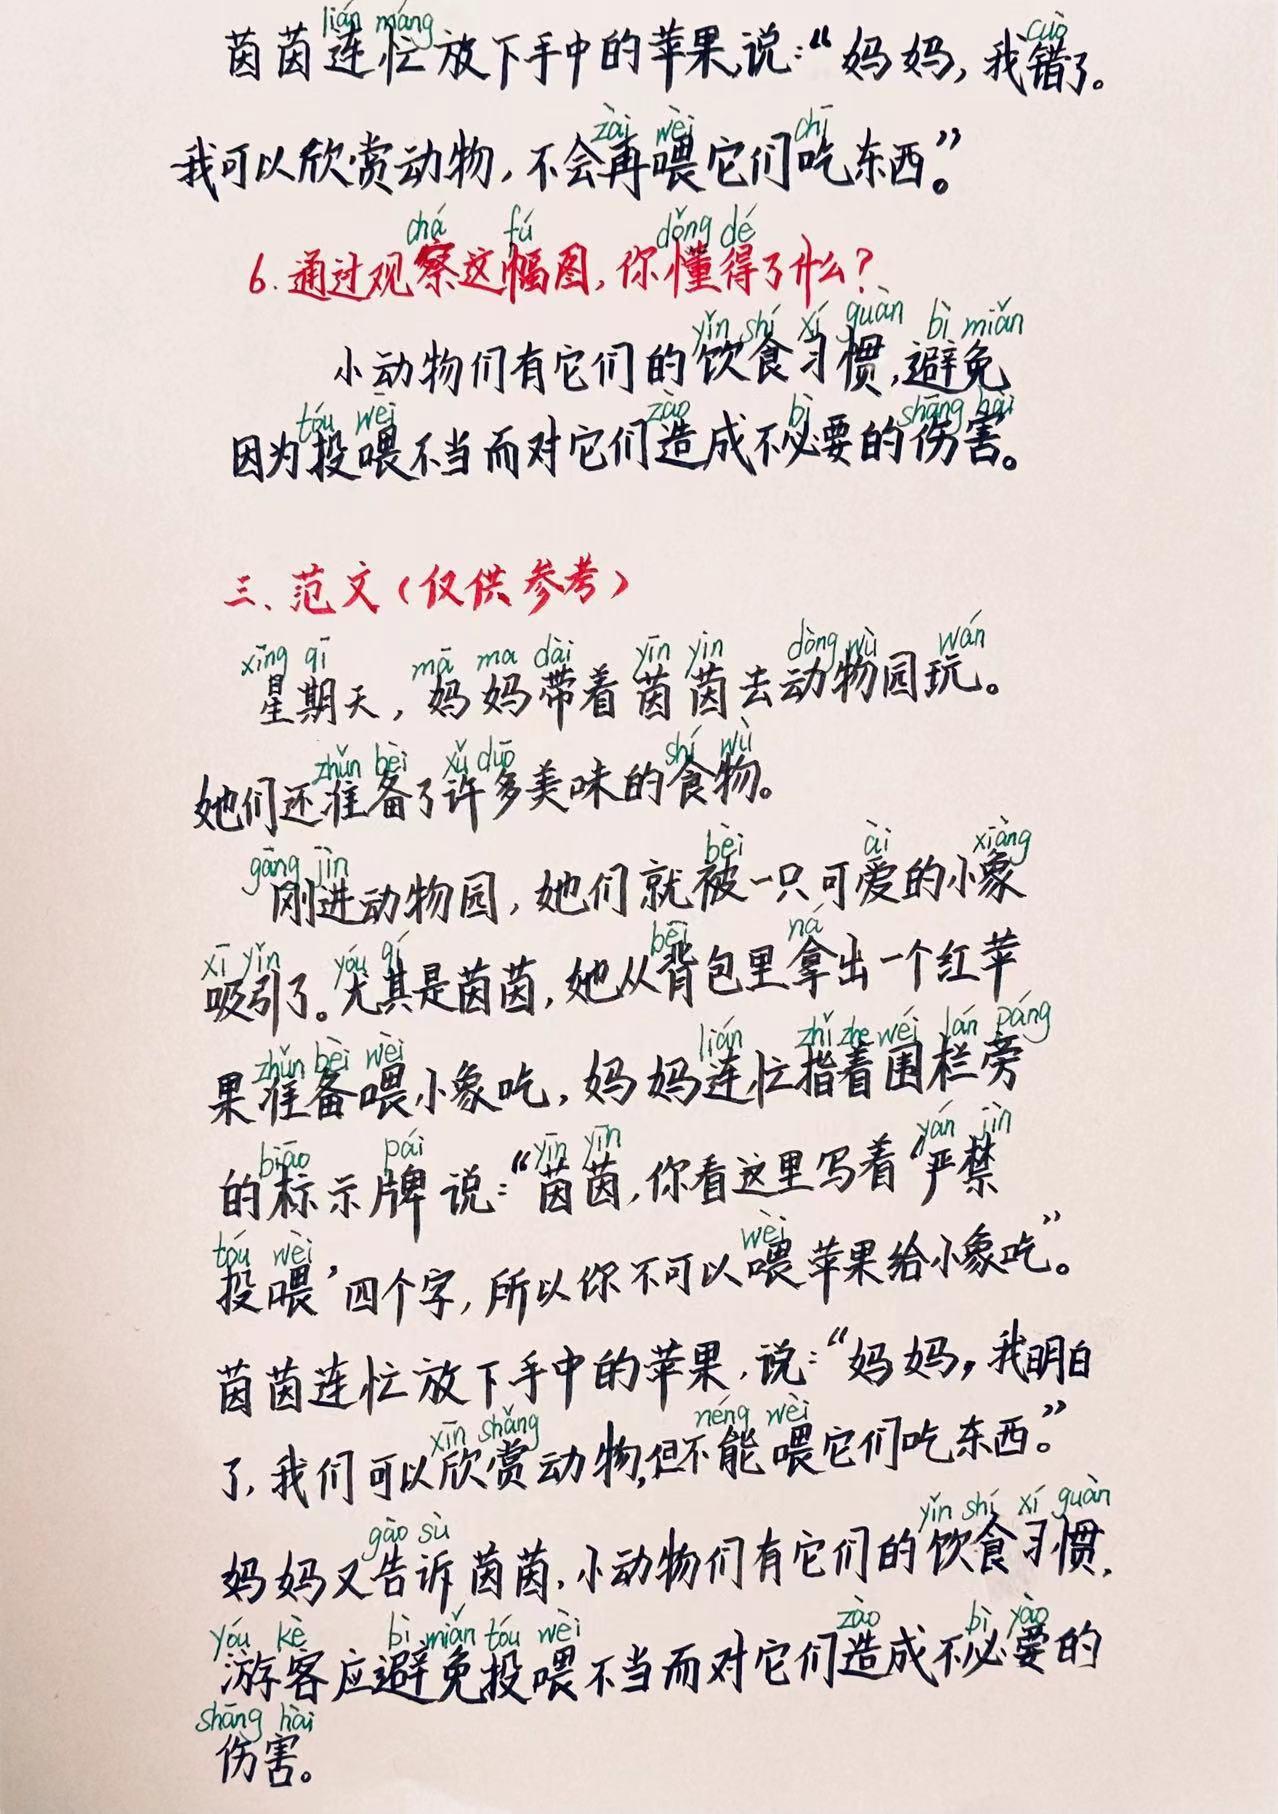 lián máng cuò
茵茵连忙放下手中的苹果,说:“妈妈,我错了。
zài wèi chī
我可以欣赏动物,不会再喂它们吃东西”。
chá fú dǒng dé
6.通过观察这幅图,你懂得了什么?
yǐn shí xí guàn bì miǎn
小动物们有它们的饮食习惯,避免
tóu wēi zào bì shāng hài
因为投喂不当而对它们造成不必要的伤害。
三、范文(仅供参考)
xīng qī mā ma dài yīn yìn dòng wù wán
星期天,妈妈带着茵茵去动物园玩。
zhǔn bèi xǔ duō shí wù
她们还准备了许多美味的食物。
gāng jìn bèi ài xiàng
刚进动物园,她们就被一只可爱的小象
xī yǐn yóu qí bēi ná
吸引了。尤其是茵茵,她从背包里拿出一个红苹
zhǔn bèi wèi lián zhǐ zhe wéi lán páng
果准备喂小象吃,妈妈连忙指着围栏旁
biāo pái yīn yīn yán jìn
的标示牌说:“茵茵,你看这里写着‘严禁
tóu wèi wèi
投喂’四个字,所以你不可以喂苹果给小象吃”。
茵茵连忙放下手中的苹果,说:“妈妈,我明白
xīn shǎng néng wèi
了,我们可以欣赏动物,但不能喂它们吃东西。”
gào sù yǐn shí xí guàn
妈妈又告诉茵茵,小动物们有它们的饮食习惯,
yóu kè bì miǎn tóu wèi zào bì yào
游客应避免投喂不当而对它们造成不必要的
shāng hài
伤害。